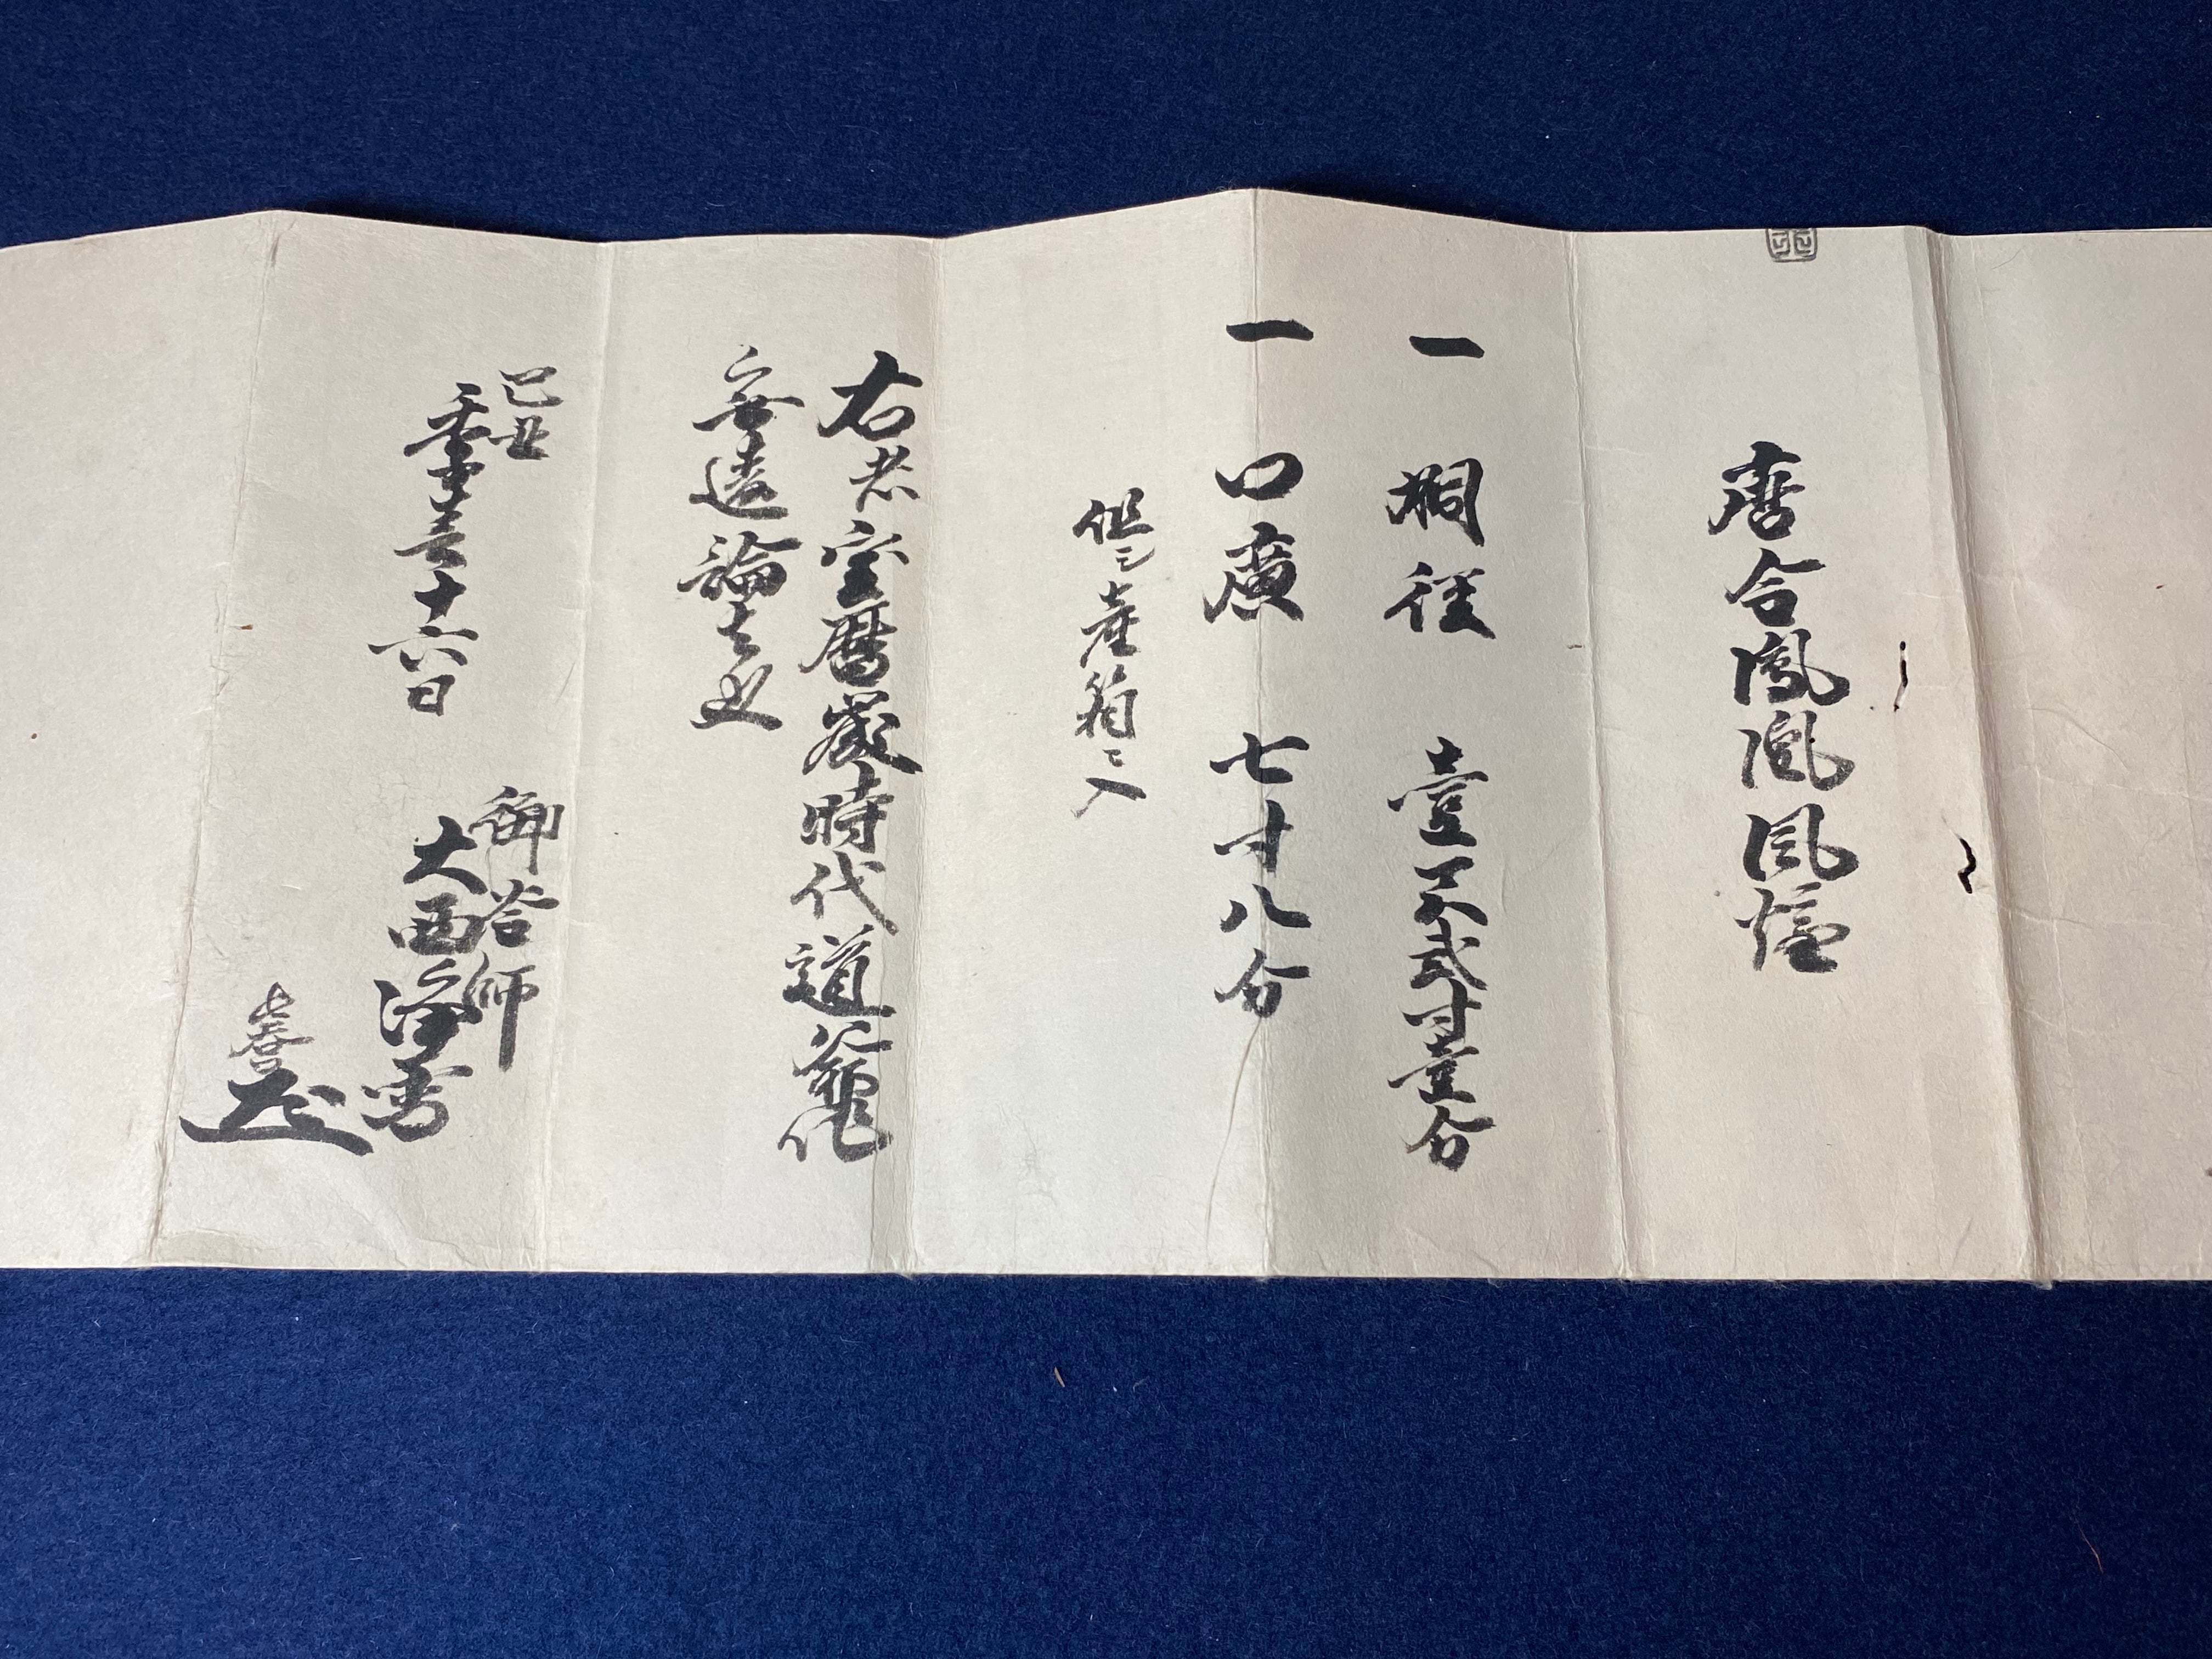 唐合鳳凰風爐
一 胴径 壹尺弐寸壹分
一 口廣 七寸八分
但シ箱ニ入
右者宝暦歳時代道爺作
無違論者也
己丑
十六日
御釜師
大西浄雪